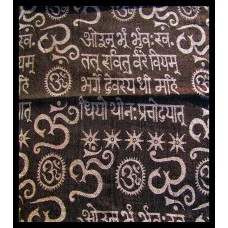 ओउम भूं र्भुवः स्वं
तत् सवितु र्वरे वियम्
भर्गे देवस्य धी महि
धियो योनः प्रचोदयात्
ओउम भूं र्भुवः स्वं